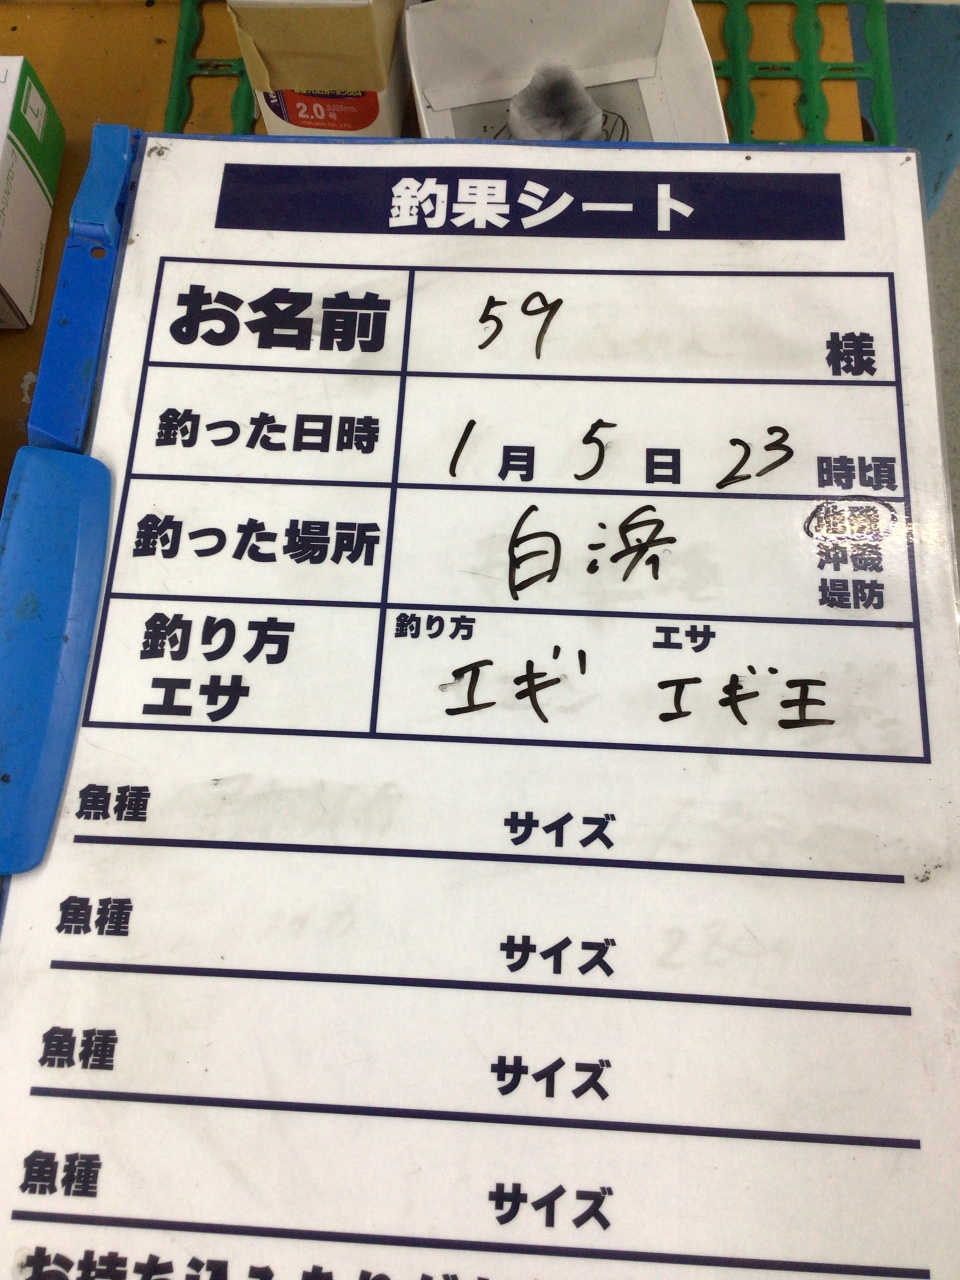 2.0号
L
釣果シート
お名前 59 様
釣った日時 1月5日23時頃
釣った場所 白浜 地磯
沖磯
堤防
釣り方 エサ
釣り方 エサ
エギ エギ王
魚種 サイズ
魚種 サイズ
魚種 サイズ
魚種 サイズ